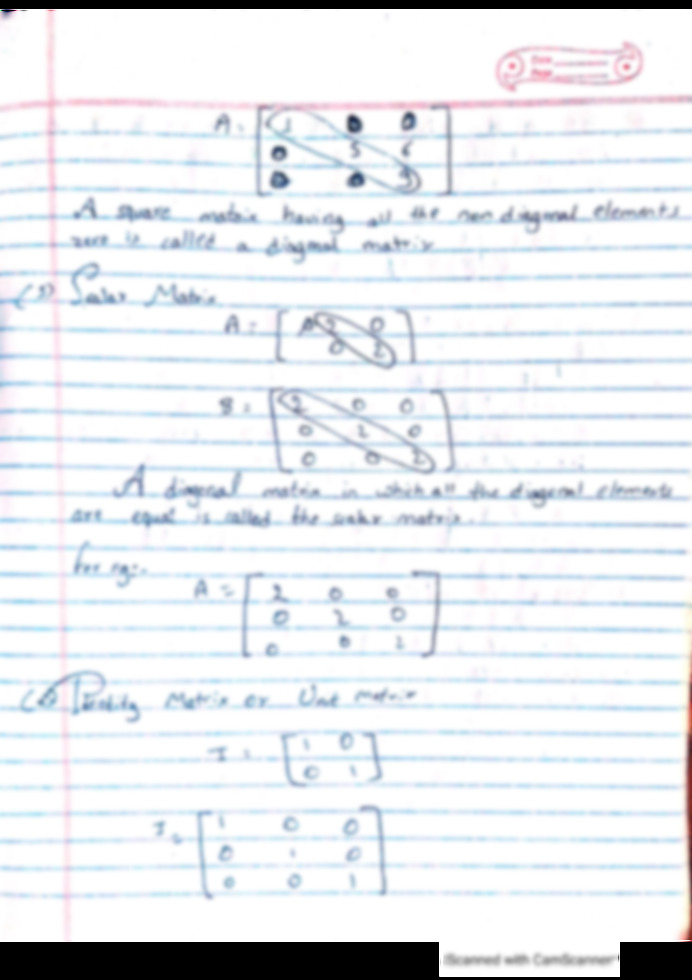 Date
Page
A = [ 1 0 0
0 5 6
0 0 9 ]
A square matrix having all the non diagonal elements
zero is called a diagonal matrix
(5) Scalar Matrix
A = [ 2 0
0 2 ]
B = [ 2 0 0
0 2 0
0 0 2 ]
A diagonal matrix in which all the diagonal elements
are equal is called the scalar matrix.
for eg:-
A = [ 2 0 0
0 2 0
0 0 2 ]
Identity Matrix or Unit matrix
I = [ 1 0
0 1 ]
I = [ 1 0 0
0 1 0
0 0 1 ]
Scanned with CamScanner